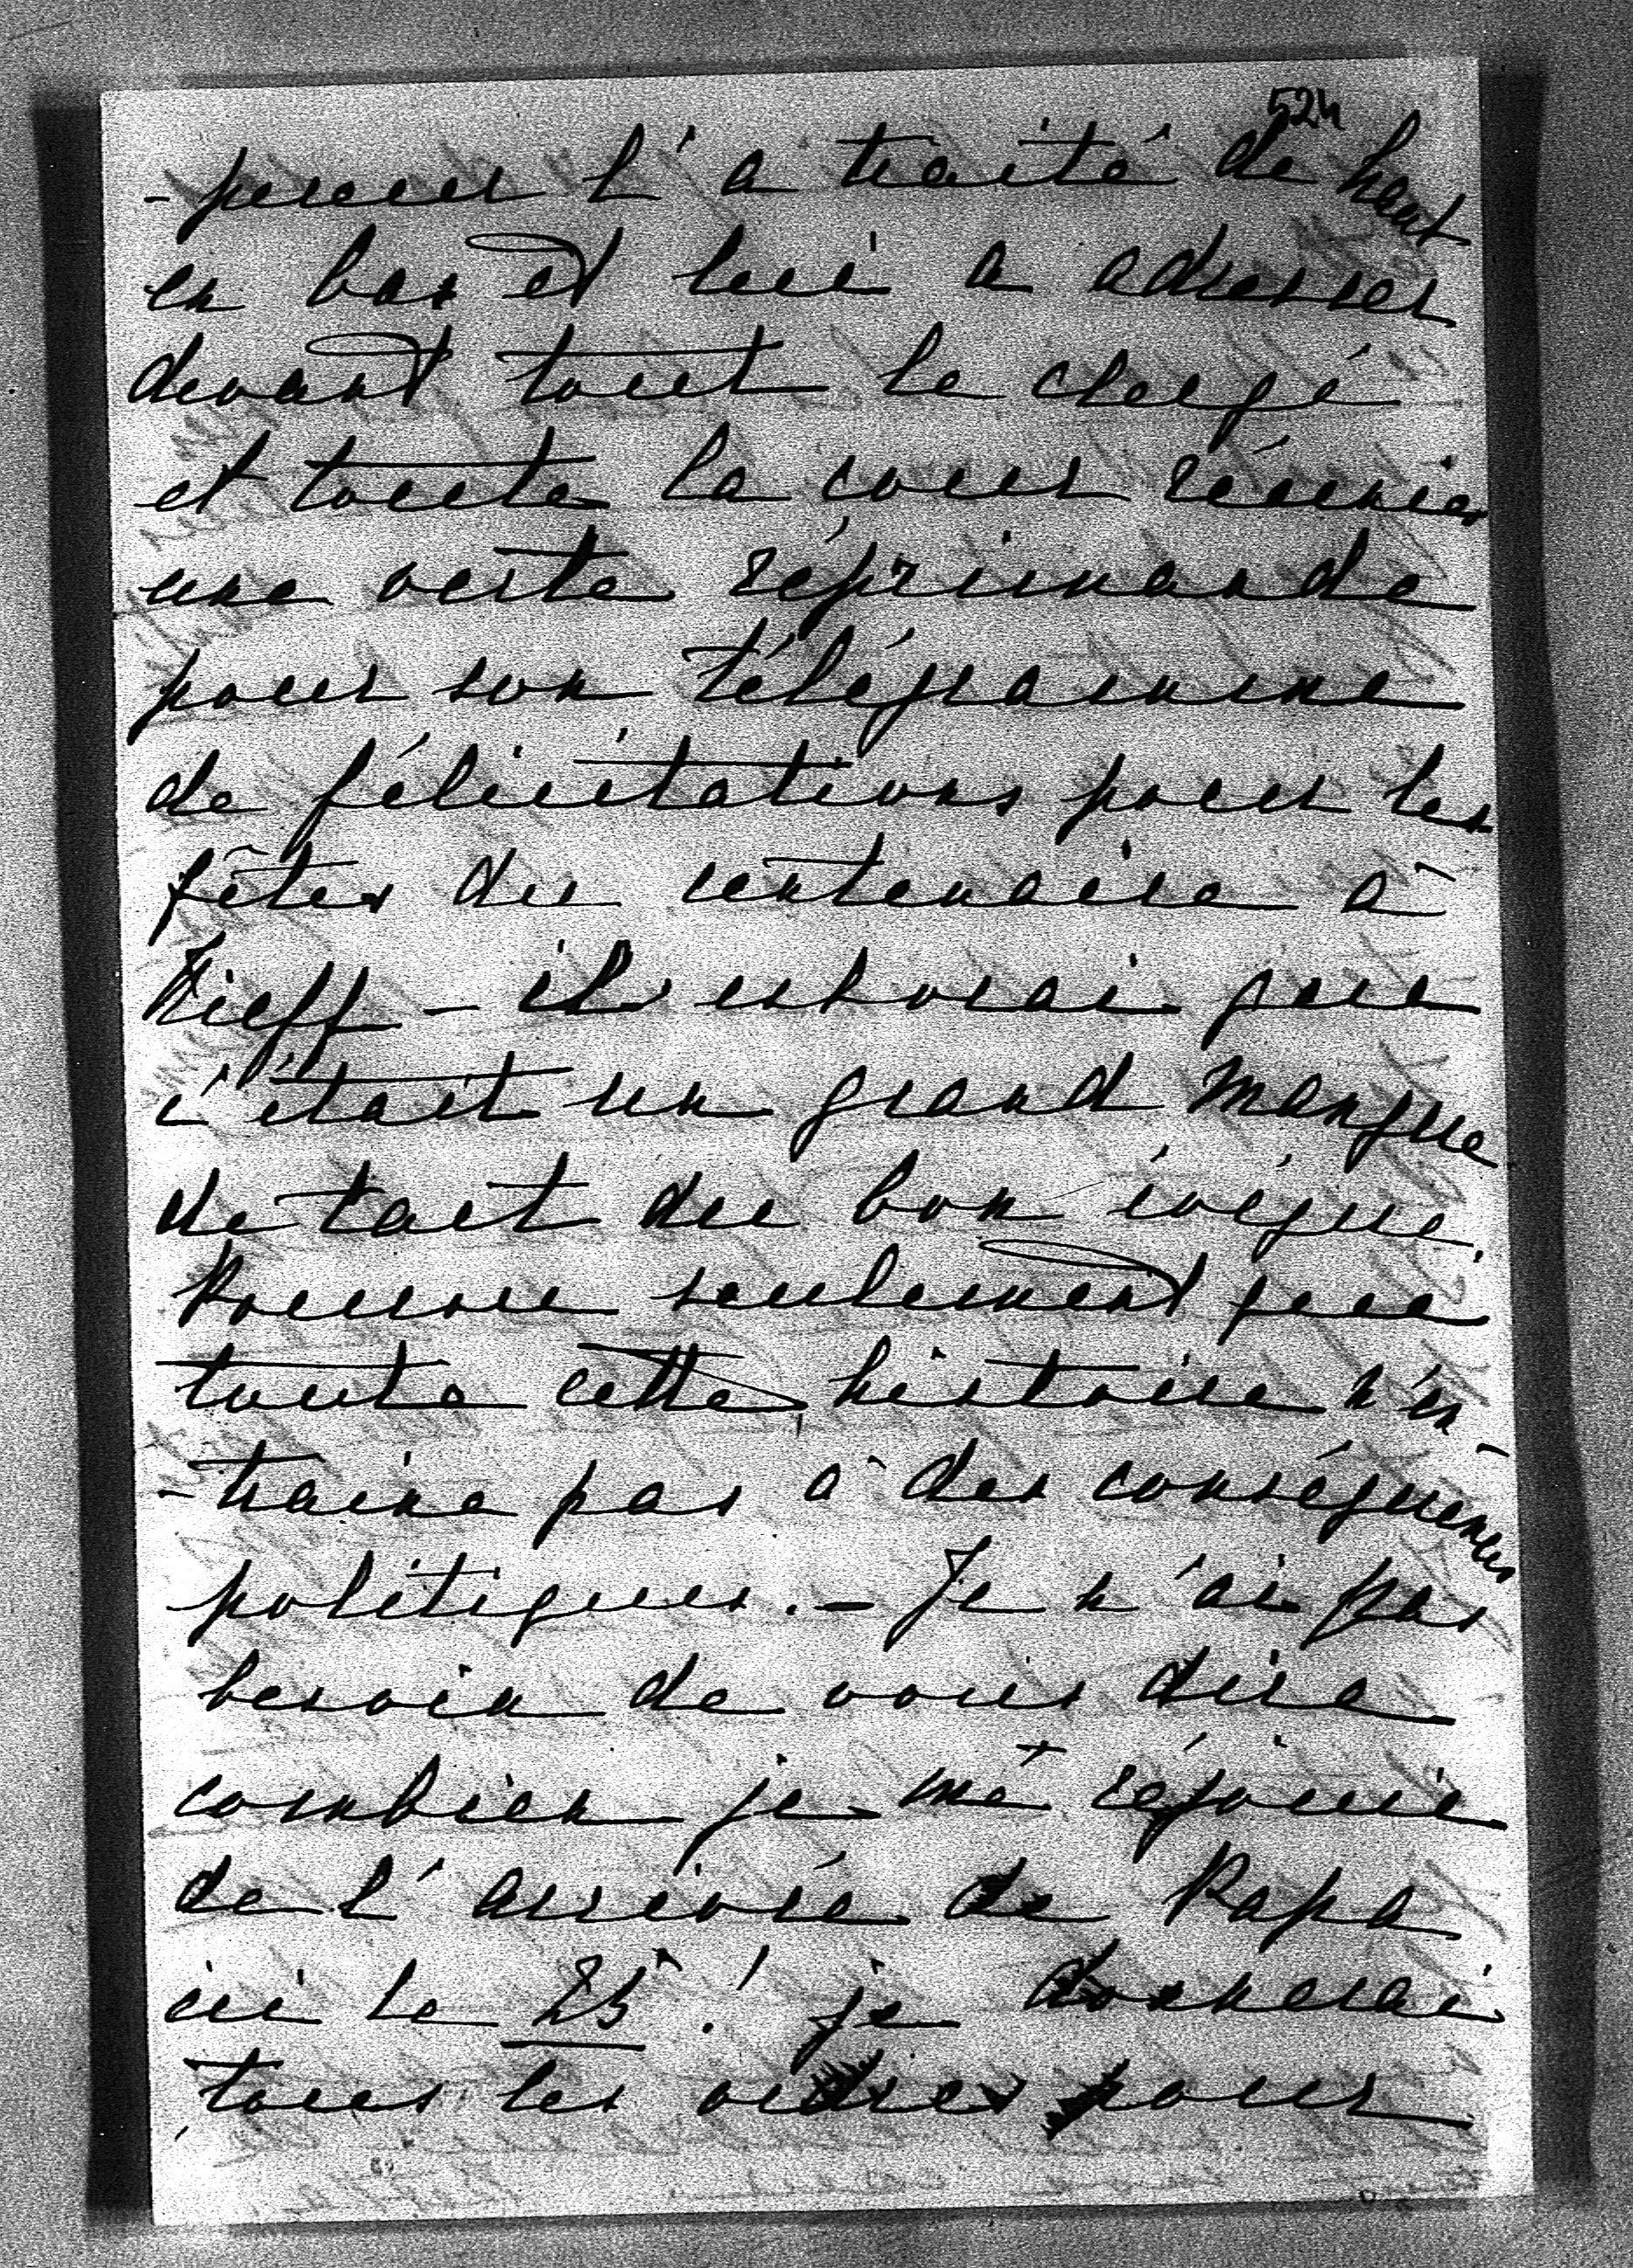 524
-pereur l'a traité de haut
en bas et lui a adresser
devant tout le clergé
et toute la cour réunies
une verte réprimande
pour son télégramme
de félicitations pour les
fêtes du centenaire à
Kieff – il est vrai que
c'était un grand manque
de tact du bon évêque.
Pourvu seulement que
toute cette histoire n'en-
-traine pas à des conséquences
politiques. – Je n'ai pas
besoin de vous dire
combien je me réjouie
de l'arrivée de Papa
ici le 25! je donnerai
tous les ordres pour